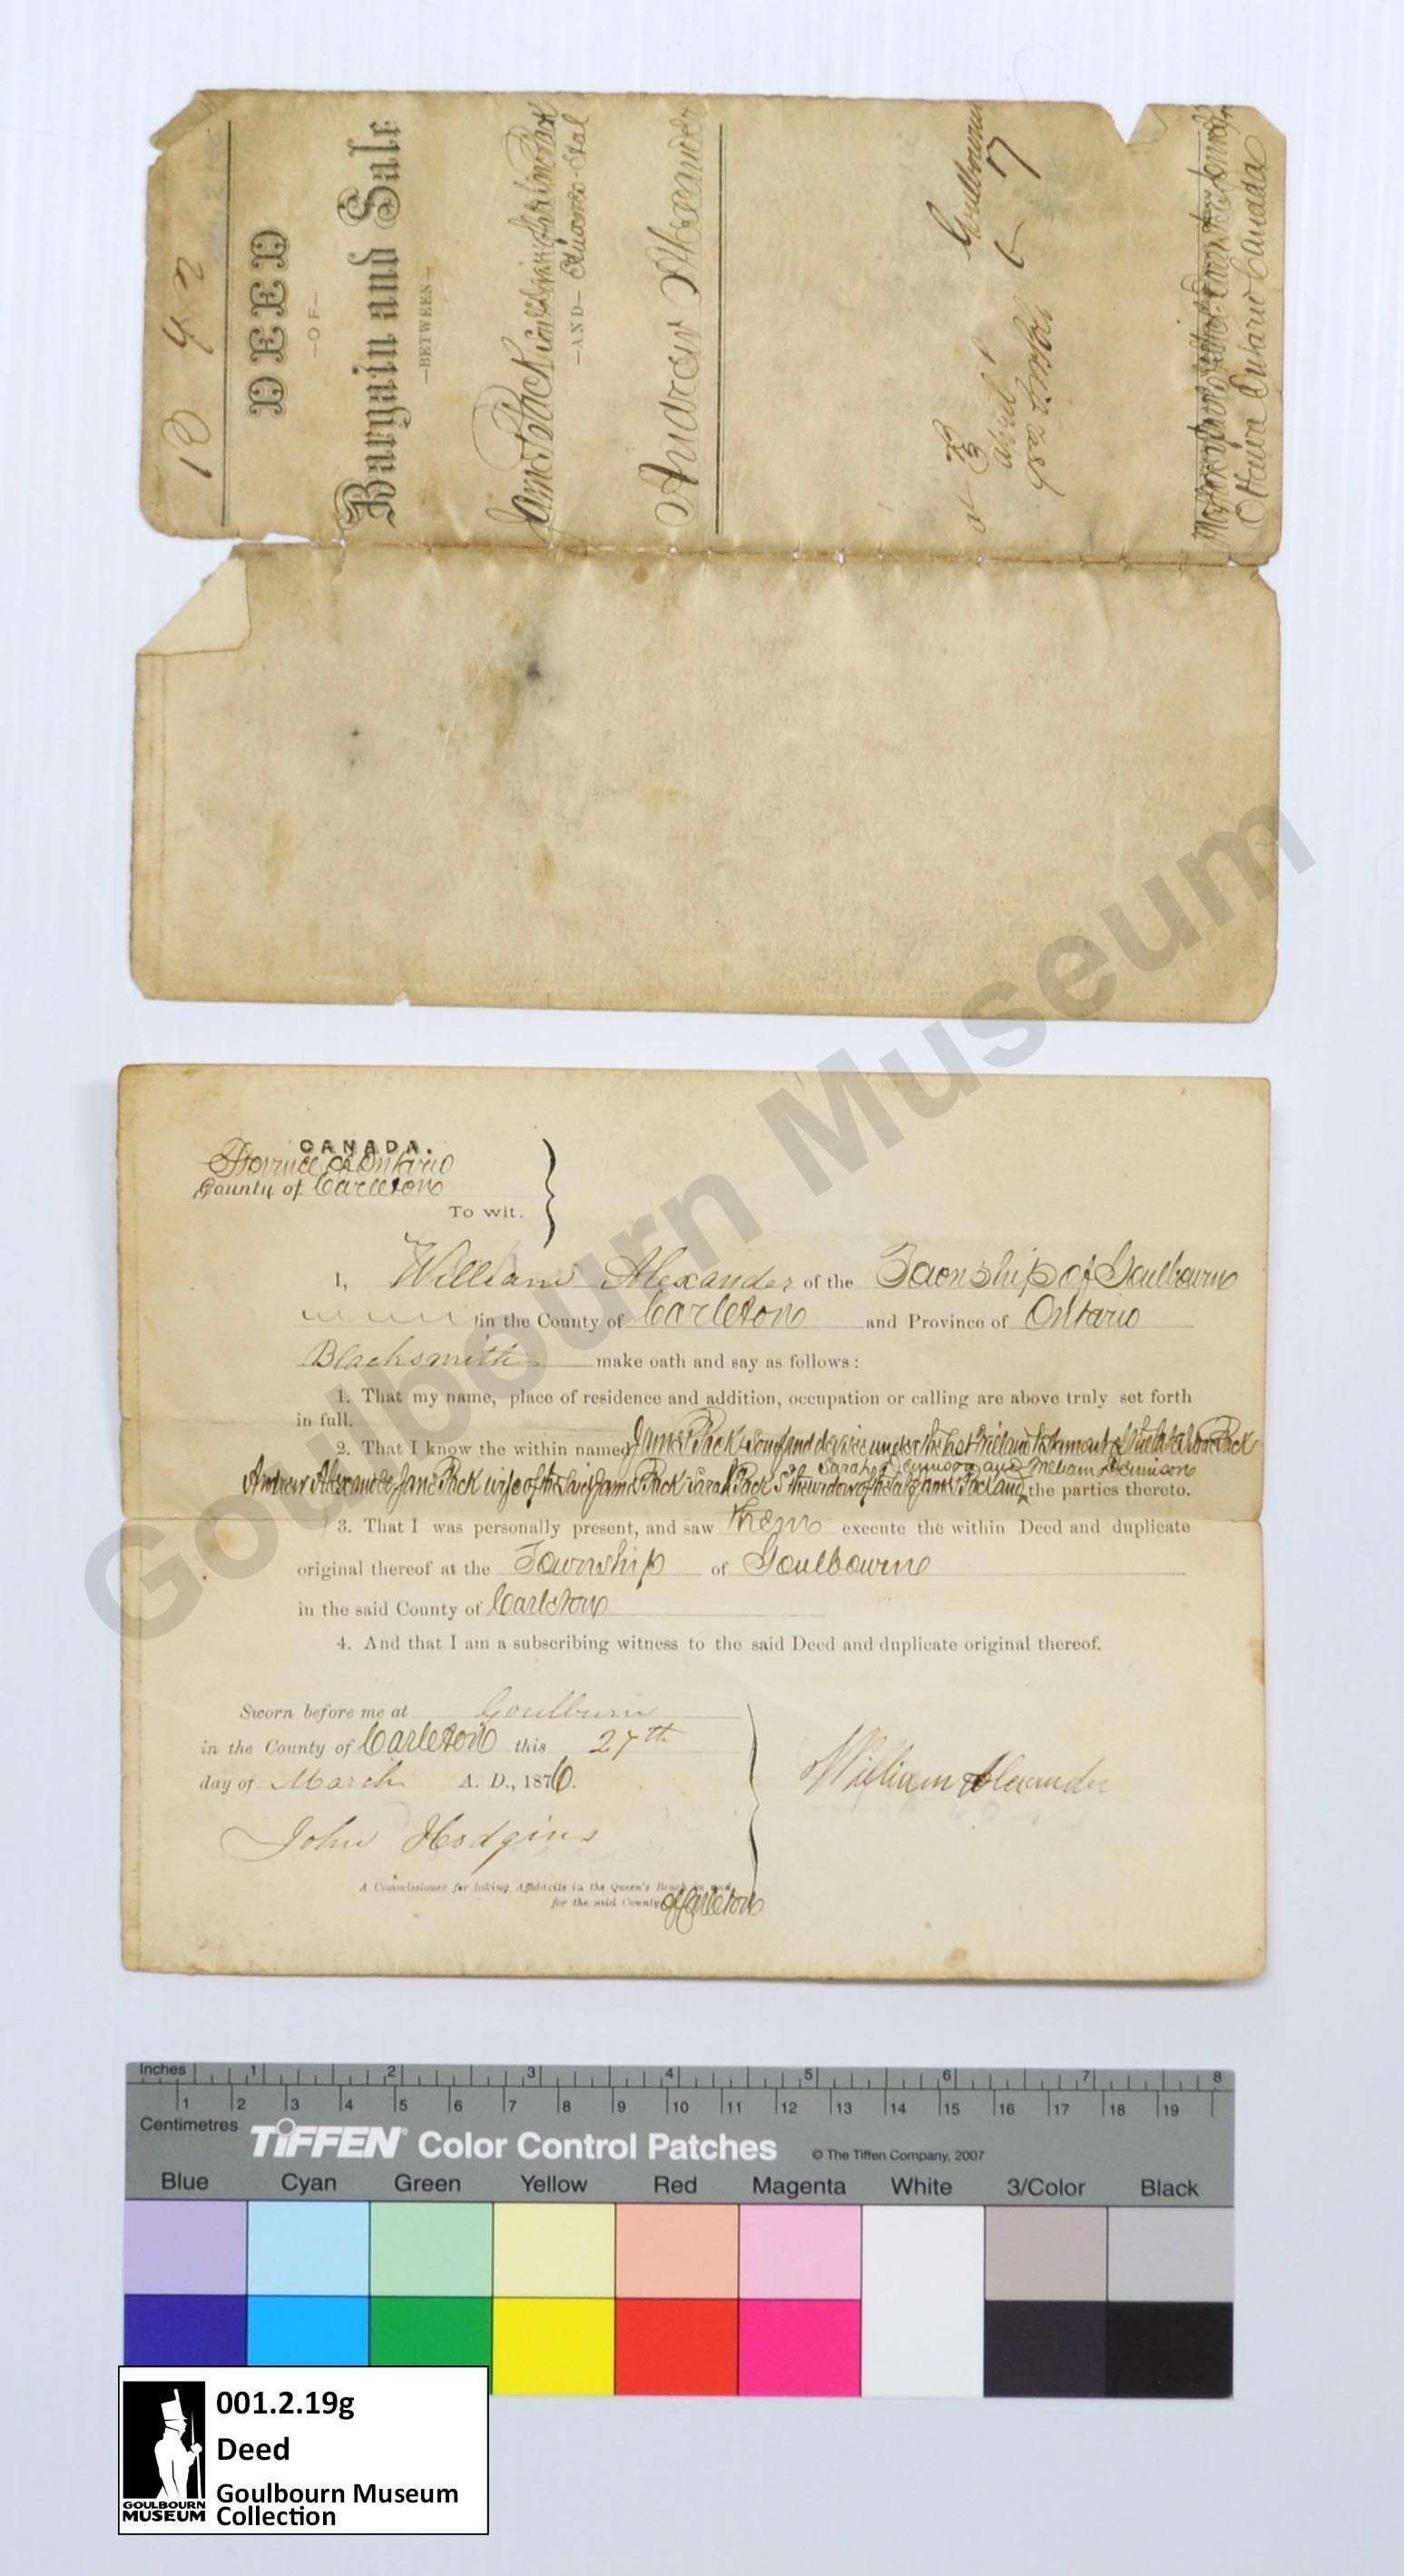 DEED
—OF—
Bargain and Sale
—BETWEEN—
James Pack
—AND—
Andrew Alexander
Goulbourn
at
April
Ottawa Ontario Canada
CANADA.
Province of Ontario
County of Carleton
To wit.
I, William Alexander of the Township of Goulbourn
in the County of Carleton and Province of Ontario
Blacksmith make oath and say as follows:
1. That my name, place of residence and addition, occupation or calling are above truly set forth
in full.
2. That I know the within named James Pack Son and devisee under the last Will and testament of the late Pack
Sarah Dennison and William Dennison
Andrew Alexander Jane Pack wife of the said James Pack Sarah Pack Sr the widow of the late James Pack and the parties thereto.
3. That I was personally present, and saw them execute the within Deed and duplicate
original thereof at the Township of Goulbourne
in the said County of Carleton
4. And that I am a subscribing witness to the said Deed and duplicate original thereof.
Sworn before me at Goulburn
in the County of Carleton this 27th
day of March A. D., 1876.
William Alexander
John Hodgins
A Commissioner for taking Affidavits in the Queen's Bench in and
for the said County of Carleton
Goulbourn Museum
Inches 1 2 3 4 5 6 7 8
1 2 3 4 5 6 7 8 9 10 11 12 13 14 15 16 17 18 19
Centimetres
TIFFEN Color Control Patches © The Tiffen Company, 2007
Blue Cyan Green Yellow Red Magenta White 3/Color Black
001.2.19g
Deed
Goulbourn Museum
Collection
GOULBOURN
MUSEUM